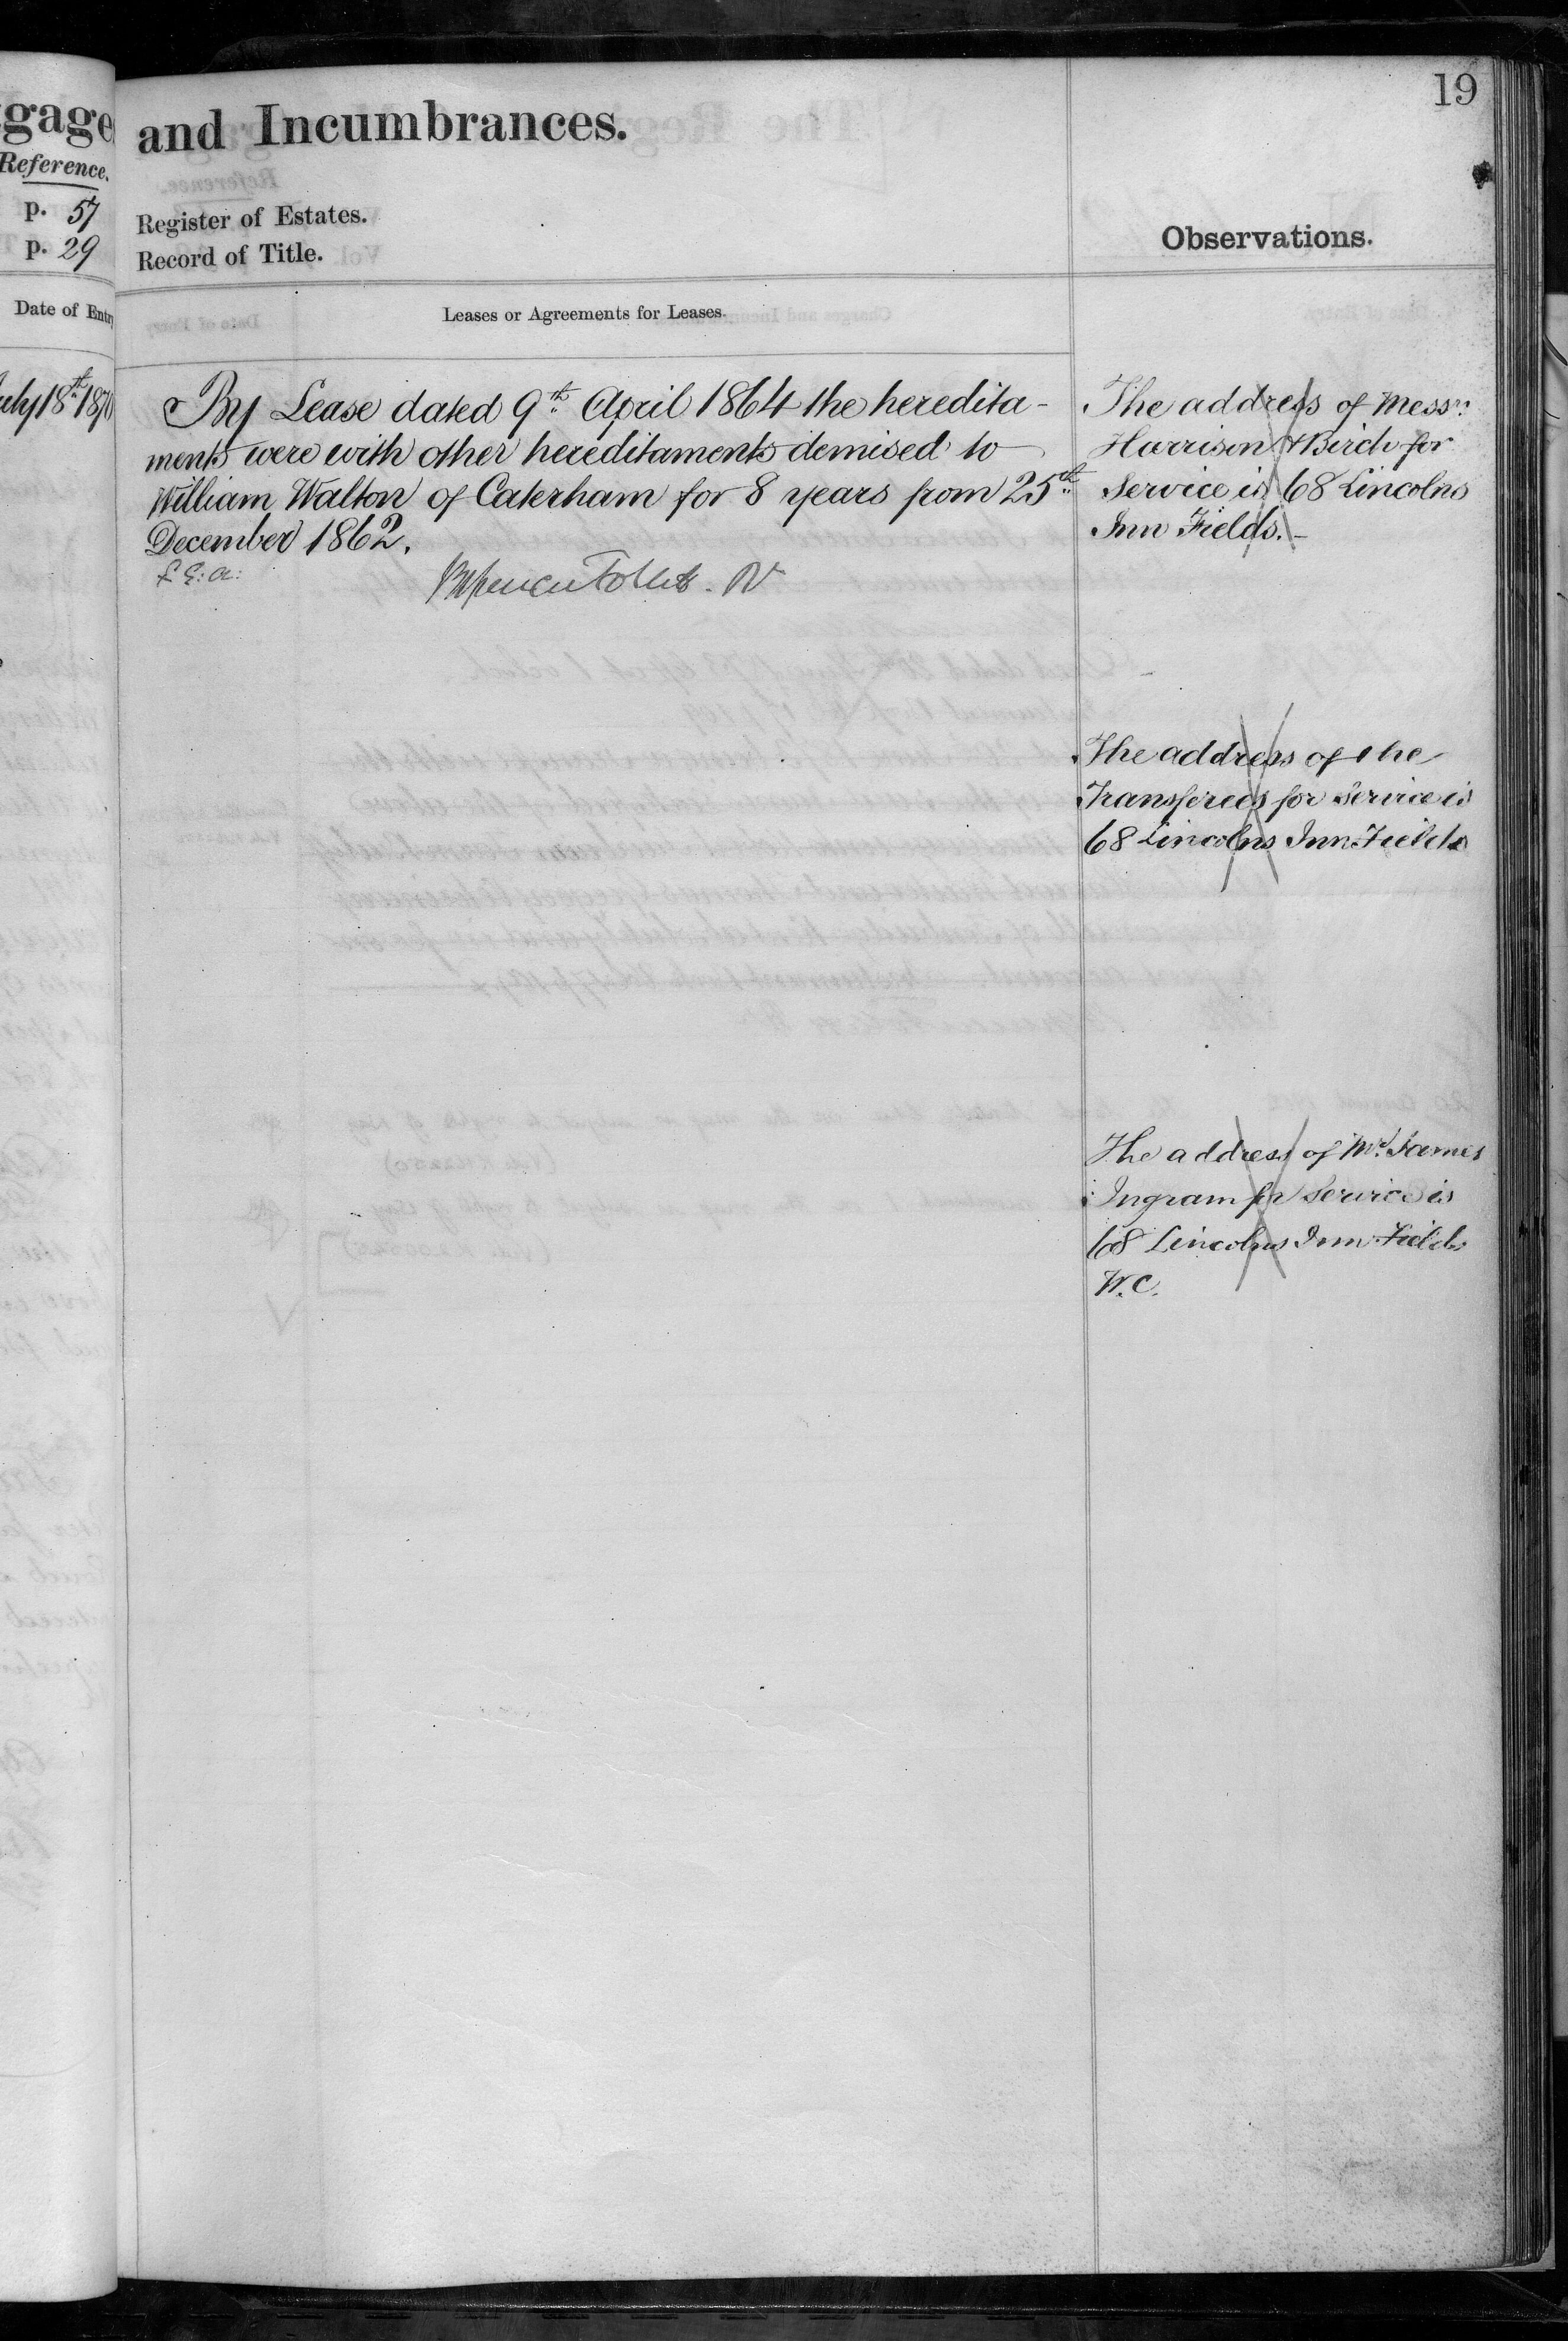 gage
Reference.
p. 57
p. 29
Date of Entry
July 18th 1870
19
and Incumbrances.
Register of Estates.
Record of Title.
Observations.
Leases or Agreements for Leases.
By Lease dated 9th April 1864 the heredita-
ments were with other hereditaments demised to
William Walton of Caterham for 8 years from 25th
December 1862.
The address of Messrs
Harrison & Birch for
Service is 68 Lincolns
Inn Fields.-
The address of the
Transferees for Service is
68 Lincolns Inn Fields
The address of Mr. James
Ingram for Service is
68 Lincolns Inn Fields
W.C.